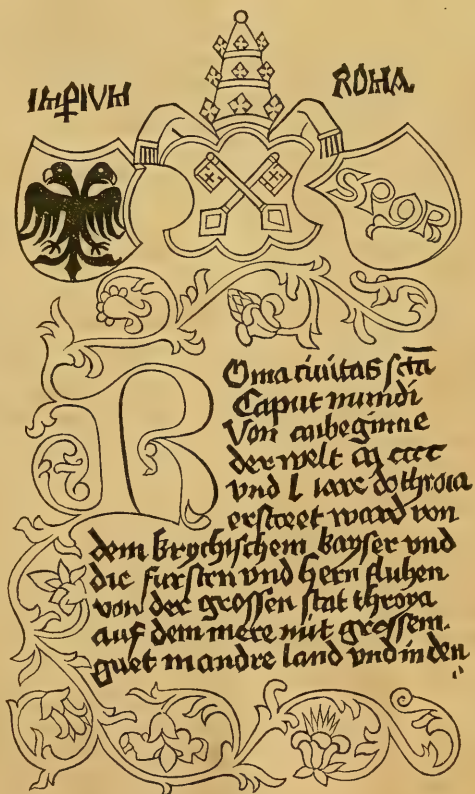 IMꝑIVM ROMA
SPQR
Roma ciuitas sctā
Caput mundi
Von anbeginne
der welt m cccc
vnd l iare do throia
ward von
dem krychischem kayser vnd
die fursten vnd hern fluhen
von der grossen stat throya
auf dem mere mit grossem
guet in andre land vnd in den〃